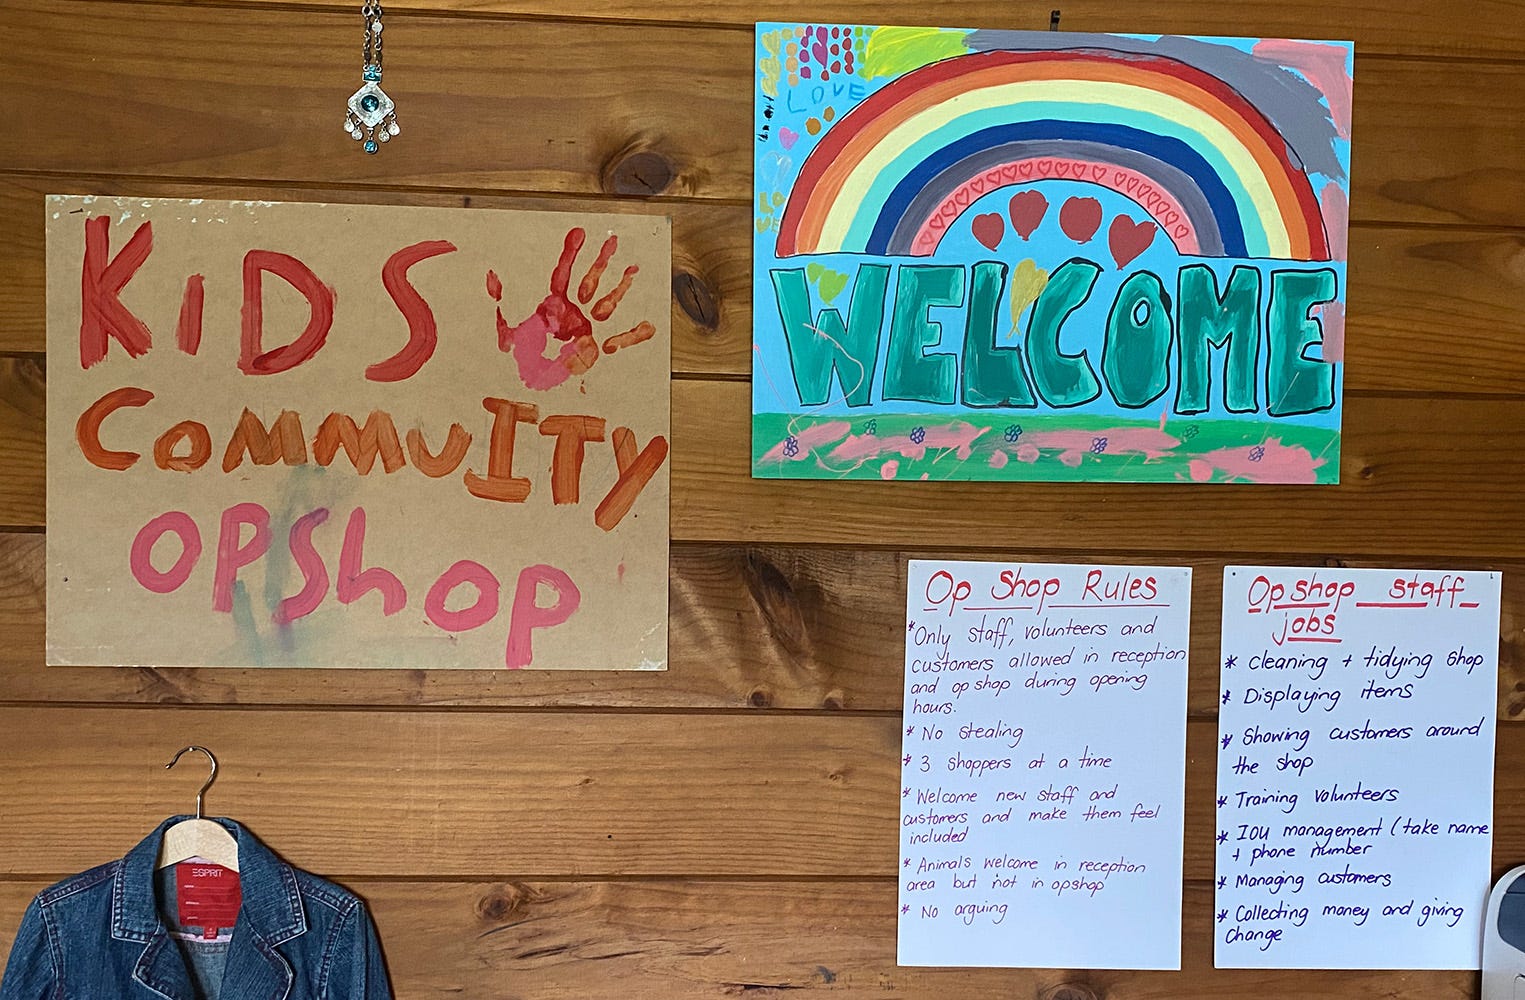 KiDS
COMMUITY
OPShop
LOVE
LO
VE
WELCOME
Op Shop Rules
*Only staff, volunteers and
customers allowed in reception
and op shop during opening
hours.
* No stealing
* 3 shoppers at a time
* Welcome new staff and
customers and make them feel
included
* Animals welcome in reception
area but not in opshop
* No arguing
Op shop staff
jobs
* Cleaning + tidying shop
* Displaying items
* Showing customers around
the shop
* Training volunteers
* IOU management (take name
+ phone number
* Managing customers
* Collecting money and giving
change
ESPRIT